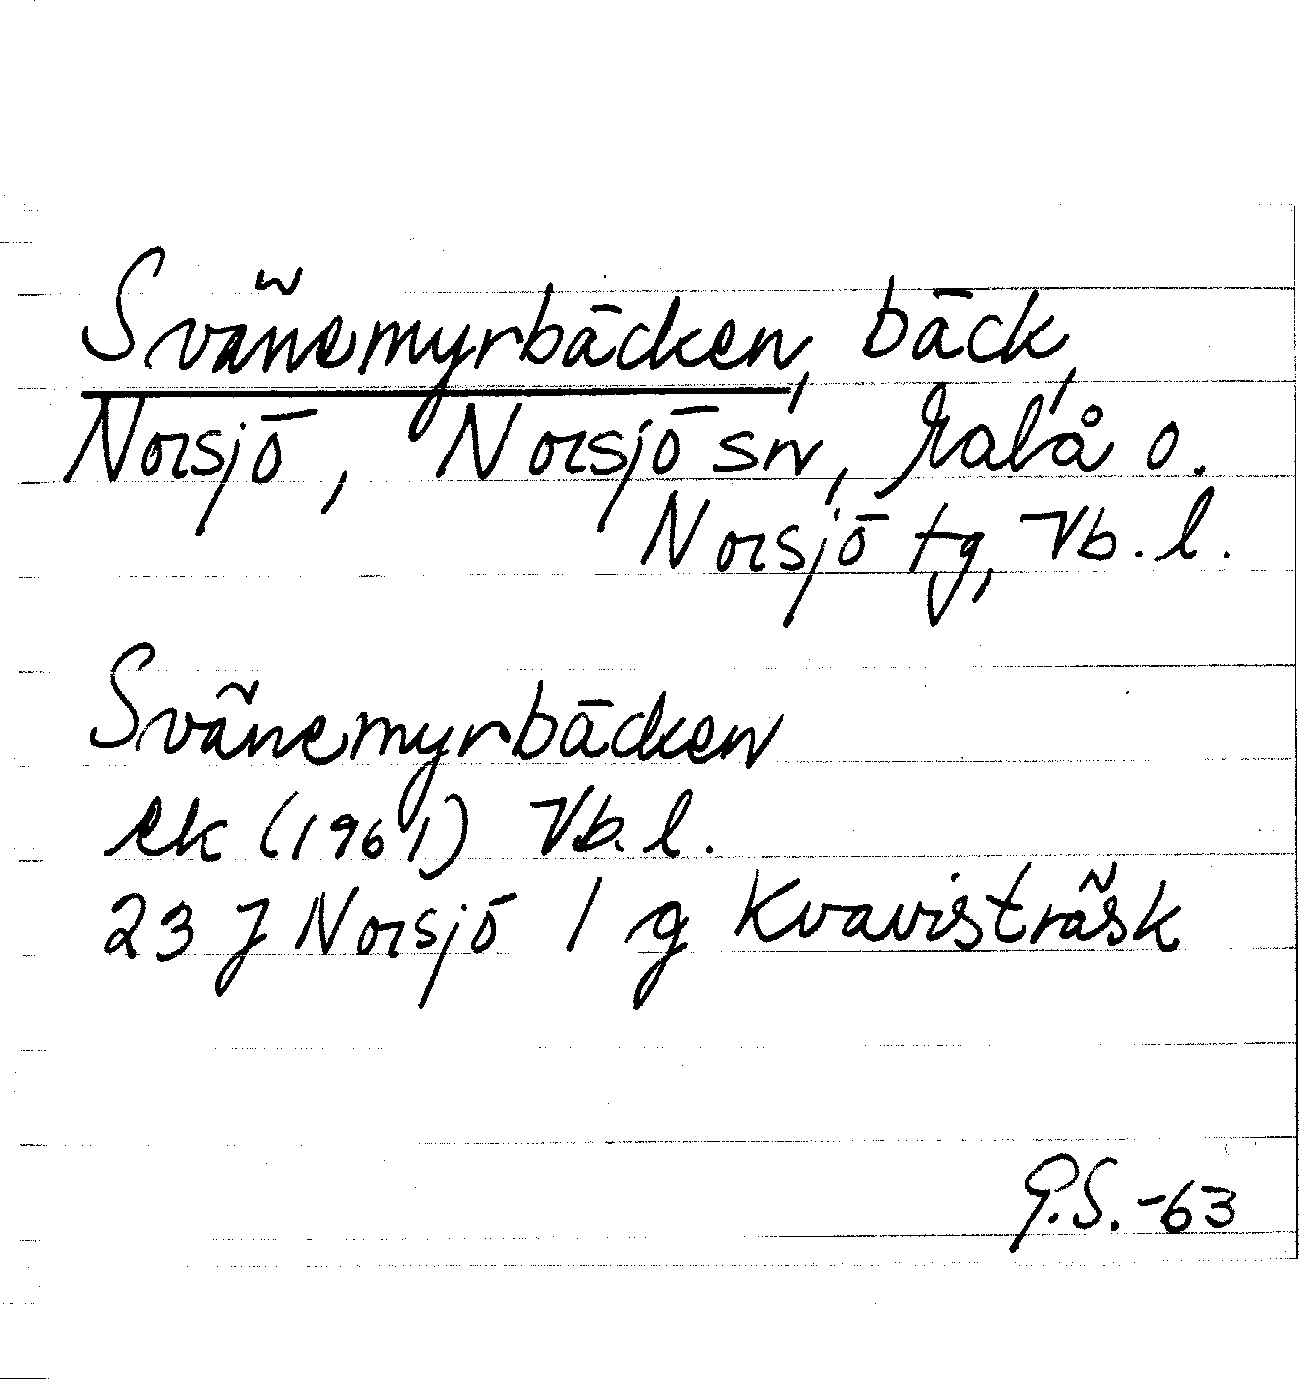 Svänemyrbäcken, bäck,
Norsjö, Norsjö sn, Malå o.
Norsjö tg, Vb. l.
Svänemyrbäcken
ek (1961) Vb. l.
23 J Norsjö 1 g Kvavisträsk
G.S. -63